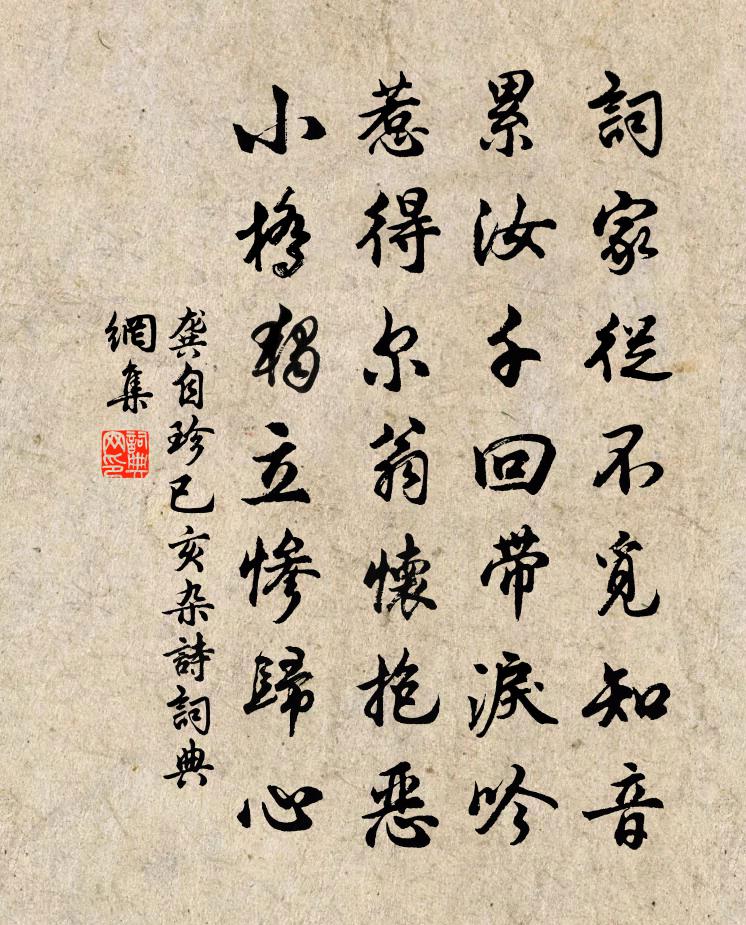 詞家從不覓知音
累汝千回帶淚吟
惹得尔翁懷抱惡
小橋獨立慘歸心
龔自珍己亥杂詩詞典
網集
詞典网印